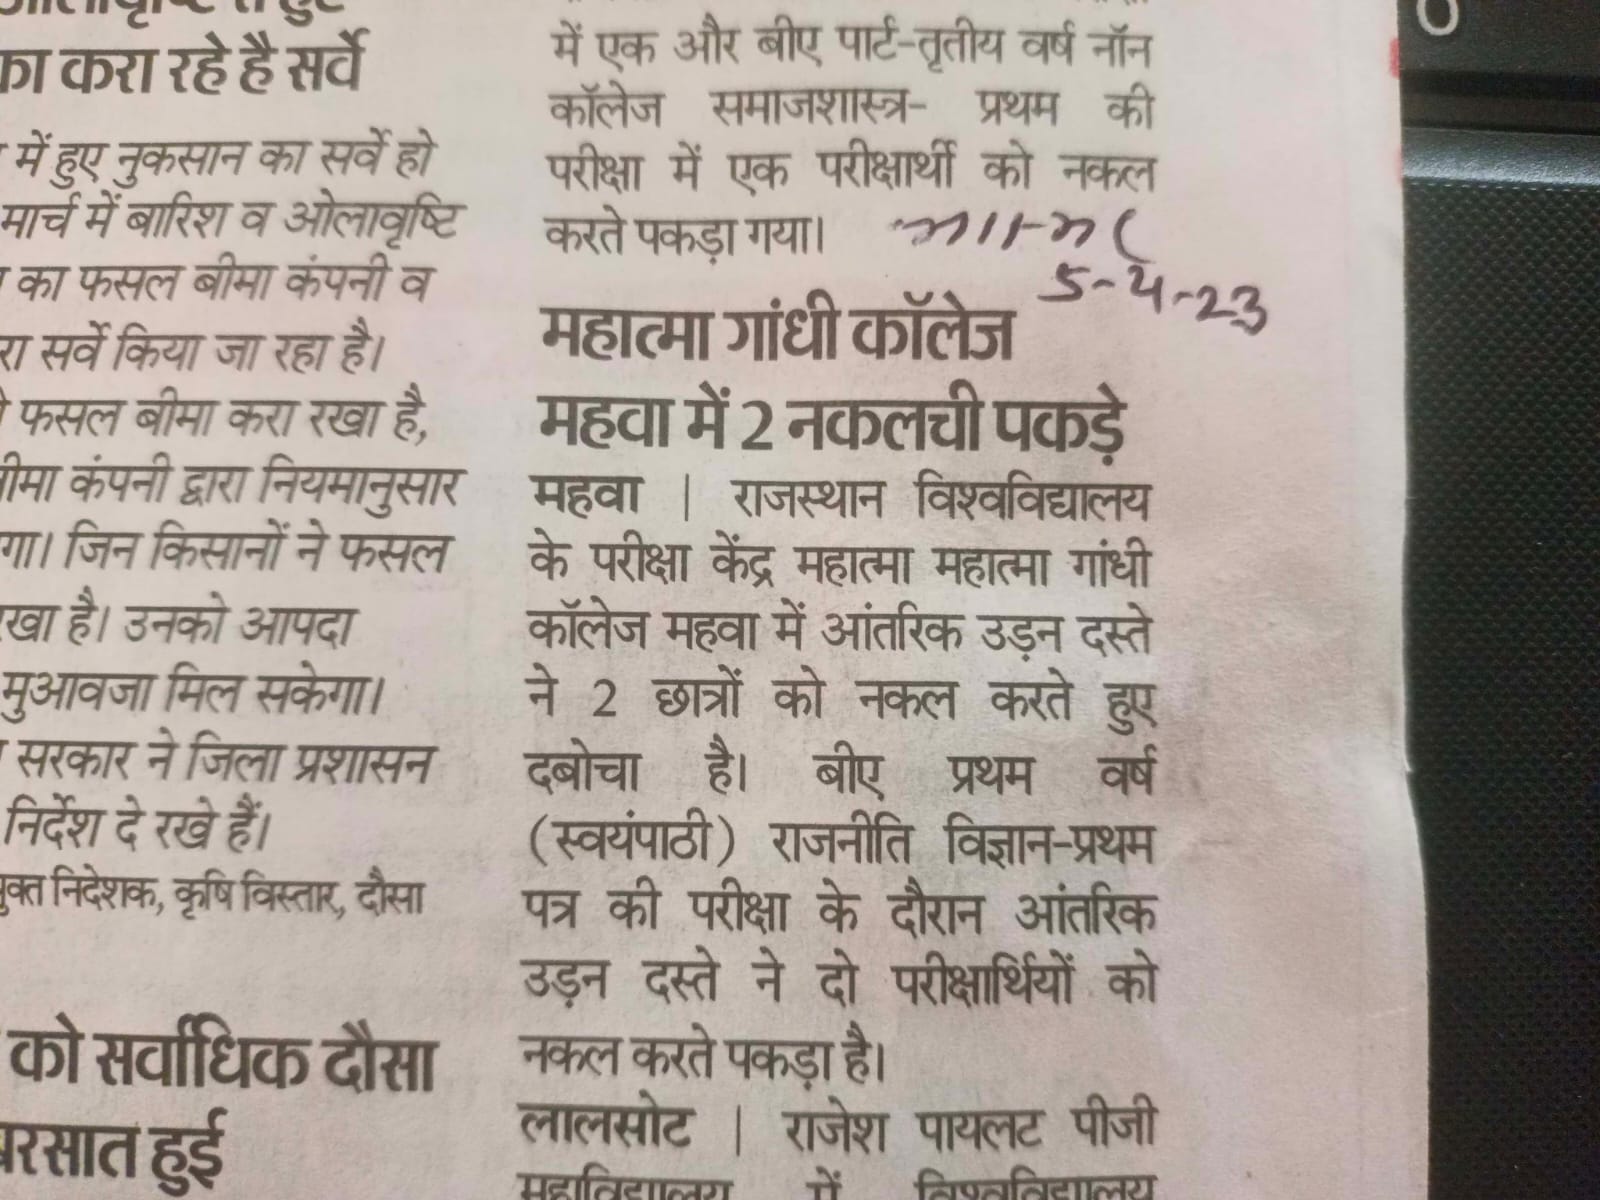 का करा रहे है सर्वे
में हुए नुकसान का सर्वे हो
मार्च में बारिश व ओलावृष्टि
का फसल बीमा कंपनी व
सर्वे किया जा रहा है।
फसल बीमा करा रखा है,
बीमा कंपनी द्वारा नियमानुसार
जिन किसानों ने फसल
रखा है। उनको आपदा
मुआवजा मिल सकेगा।
सरकार ने जिला प्रशासन
निर्देश दे रखे हैं।
निदेशक, कृषि विस्तार, दौसा
को सर्वाधिक दौसा
बरसात हुई
में एक और बीए पार्ट-तृतीय वर्ष नॉन
कॉलेज समाजशास्त्र- प्रथम की
परीक्षा में एक परीक्षार्थी को नकल
करते पकड़ा गया।
5-4-23
महात्मा गांधी कॉलेज
महवा में 2 नकलची पकड़े
महवा | राजस्थान विश्वविद्यालय
के परीक्षा केंद्र महात्मा महात्मा गांधी
कॉलेज महवा में आंतरिक उड़न दस्ते
ने 2 छात्रों को नकल करते हुए
दबोचा है। बीए प्रथम वर्ष
(स्वयंपाठी) राजनीति विज्ञान-प्रथम
पत्र की परीक्षा के दौरान आंतरिक
उड़न दस्ते ने दो परीक्षार्थियों को
नकल करते पकड़ा है।
लालसोट | राजेश पायलट पीजी
महाविद्यालय में विश्वविद्यालय